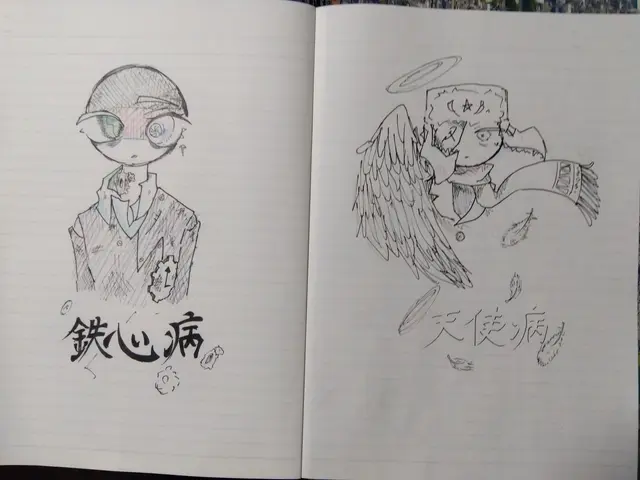 鉄心病
天使病